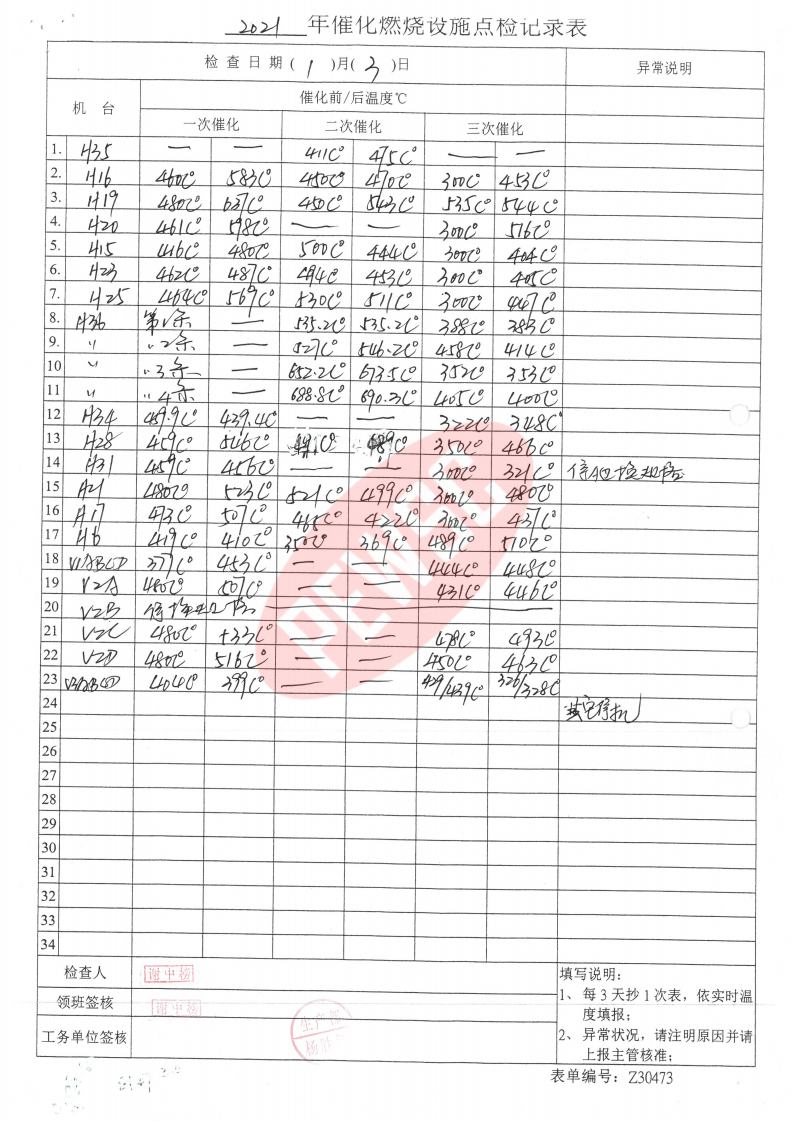 2021 年催化燃烧设施点检记录表
检查日期( 1 )月( 3 )日 异常说明
机 台 催化前/后温度℃
一次催化 二次催化 三次催化
1. H35 — — 411C° 475C° — —
2. H16 460C° 583C° 450C° 470C° 300C° 453C°
3. H19 480C° 637C° 450C° 543C° 535C° 544C°
4. H20 461C° 598C° — — 300C° 516C°
5. H15 416C° 480C° 500C° 444C° 300C° 404C°
6. H23 462C° 487C° 494C° 453C° 300C° 405C°
7. H25 464C° 569C° 530C° 511C° 300C° 447C°
8. H36 第1条 — 535.2C° 535.2C° 388C° 383C°
9. " "2条 — 527C° 546.2C° 458C° 414C°
10 " "3条 — 652.2C° 673.5C° 352C° 353C°
11 " "4条 — 688.8C° 690.3C° 405C° 400C°
12 H34 459.9C° 439.4C° — — 322C° 348C°
13 H28 459C° 516C° 489C° 350C° 466C°
14 H31 459C° 456C° — — 300C° 321C°
15 H21 480C° 523C° 521C° 499C° 300C° 480C°
16 H17 473C° 507C° 465C° 422C° 300C° 437C°
17 H6 419C° 410C° 350C° 369C° 489C° 510C°
18 V1ABCD 377C° 453C° — — 444C° 448C°
19 V2A 480C° 507C° — — 431C° 446C°
20 V2B
21 V2C 480C° — — 478C° 493C°
22 V2D 480C° 516C° — — 450C° 463C°
23 V3ABCD 404C° 399C° — — 429/439C° 326/328C°
24
25
26
27
28
29
30
31
32
33
34
PEWC
检查人 谢中榜
领班签核 谢中榜
工务单位签核 生产部
填写说明:
1、每3天抄1次表，依实时温
度填报；
2、异常状况，请注明原因并请
上报主管核准；
表单编号：Z30473